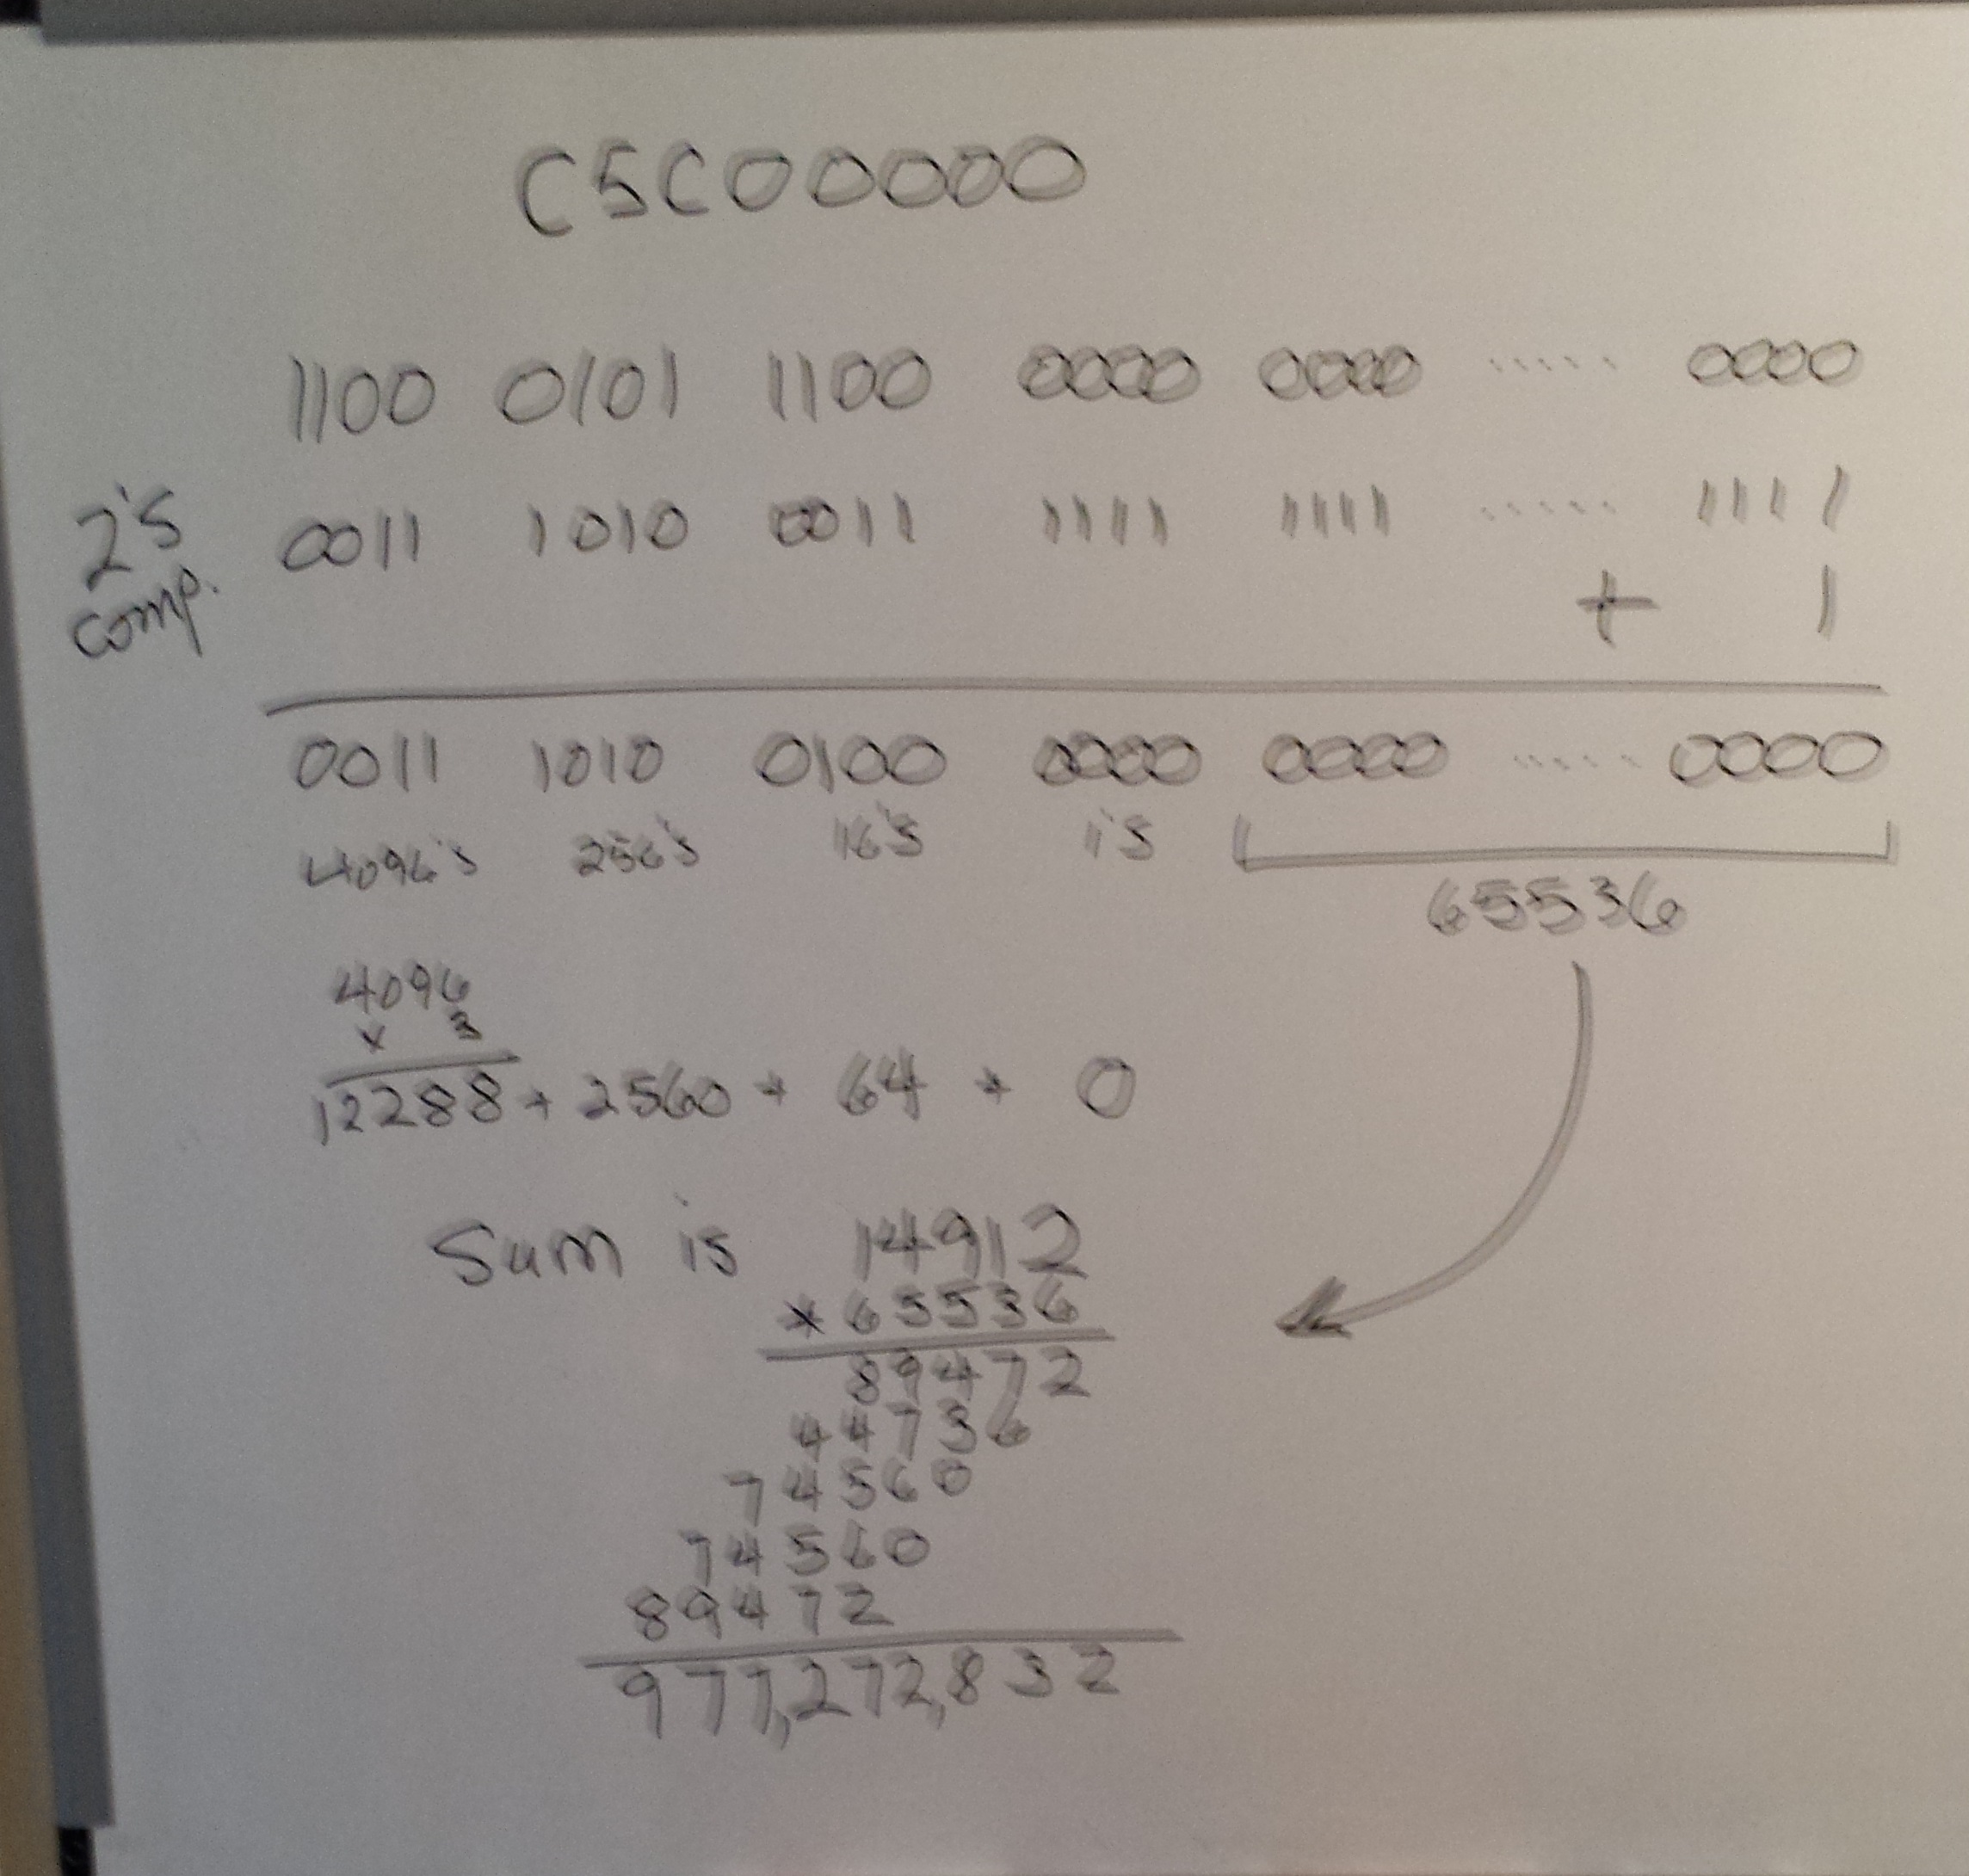 C5C00000
1100 0101 1100 0000 0000 ..... 0000
2's comp. 0011 1010 0011 1111 1111 ..... 1111
+ 1
0011 1010 0100 0000 0000 ..... 0000
4096's 256's 16's 1's
65536
4096
x 3
12288 + 2560 + 64 + 0
Sum is 14912
* 65536
89472
44736
74560
74560
89472
977,272,832